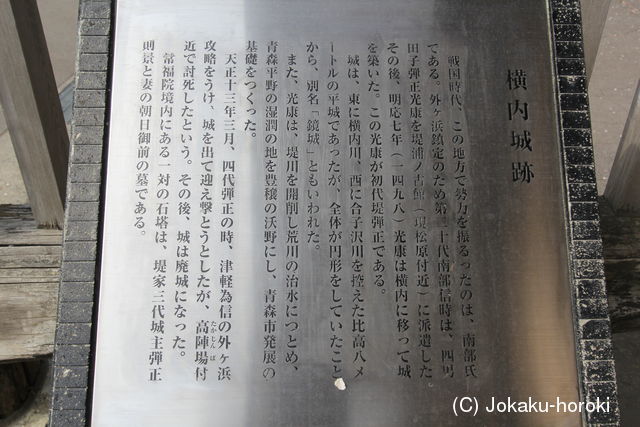 横内城跡
戦国時代、この地方で勢力を振るったのは、南部氏
である。外ヶ浜鎮定のため第二十代南部信時は、四男
田子弾正光康を堤浦ノ古館（堤松原付近）に派遣した。
その後、明応七年（一四九八）光康は横内に移って城
を築いた。この光康が初代堤弾正である。
城は、東に横内川、西に合子沢川を控えた比高八メ
ートルの平城であったが、全体が円形をしていたこと
から、別名「鏡城」ともいわれた。
また、光康は、堤川を開削し荒川の治水につとめ、
青森平野の湿潤の地を豊穣の沃野にし、青森市発展の
基礎をつくった。
天正十三年三月、四代弾正の時、津軽為信の外ヶ浜
攻略をうけ、城を出て迎え撃とうとしたが、高陣場付
たかじんば
近で討死したという。その後、城は廃城になった。
常福院境内にある一対の石塔は、堤家三代城主弾正
則景と妻の朝日御前の墓である。
(C) Jokaku-horoki